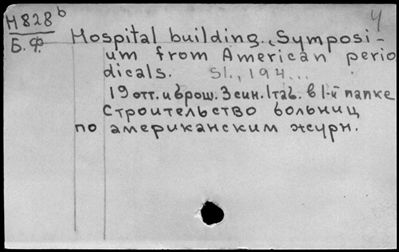 Н828ᵇ
Б.Ф.
Ч
Hospital building. Symposi-
um from American perio
dicals. Sl., 194...
19 отт. и брош. 3 син. 1 таб. в 1-й папке
Строительство больниц
по американским журн.